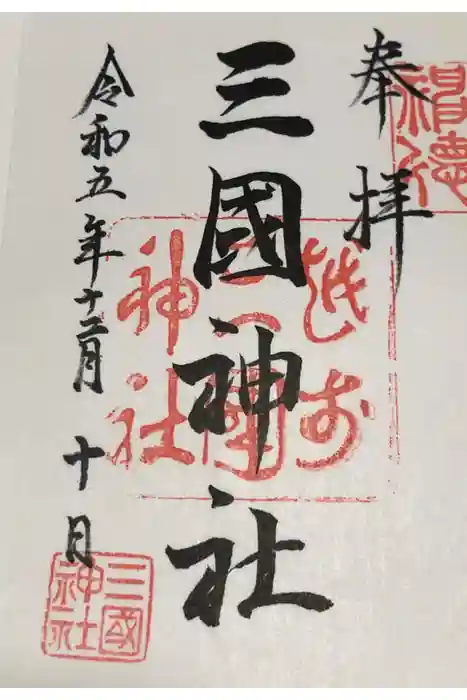 奉拝
越前
三國
神社
三國神社
令和五年十二月十日
三國
神社